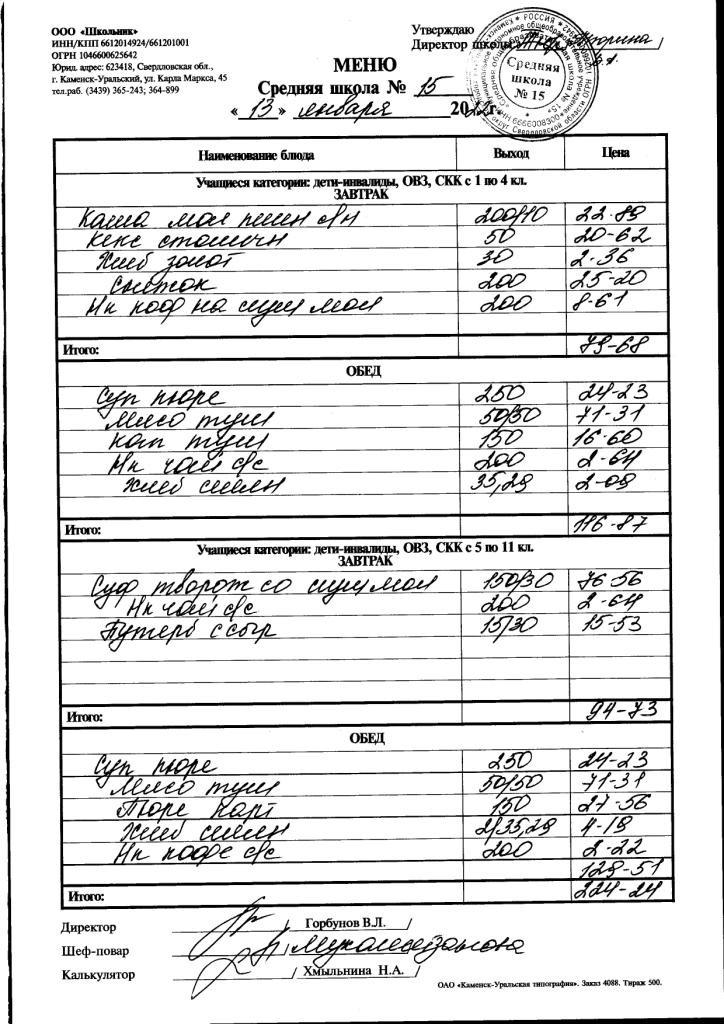 ООО «Школьник»
ИНН/КПП 6612014924/661201001
ОГРН 1046600625642
Юрид. адрес: 623418, Свердловская обл.,
г. Каменск-Уральский, ул. Карла Маркса, 45
тел.раб. (3439) 365-243; 364-899
Утверждаю
Директор школы
РОССИЯ
Средняя
школа
№ 15
МЕНЮ
Средняя школа № 15
« 13 » января 20 г.
Наименование блюда Выход Цена
Учащиеся категории: дети-инвалиды, ОВЗ, СКК с 1 по 4 кл.
ЗАВТРАК
Каша мол пшен с/м 200/10 22-89
Кекс столичн 50 20-62
Хлеб золот 30 2-36
Снежок 200 25-20
Нп коф на сгущ мол 200 8-61
Итого: 79-68
ОБЕД
Суп пюре 250 24-23
Мясо туш 50/50 71-31
Кап туш 150 16-60
Нп чай с/с 200 2-64
Хлеб смешн 35,29 2-09
Итого: 116-87
Учащиеся категории: дети-инвалиды, ОВЗ, СКК с 5 по 11 кл.
ЗАВТРАК
Суф творож со сгущ мол 150/30 76-56
Нп чай с/с 200 2-64
Бутерб с сыр 15/30 15-53
Итого: 94-73
ОБЕД
Суп пюре 250 24-23
Мясо туш 50/50 71-31
Пюре карт 150 27-56
Хлеб смешн 2/35,29 4-19
Нп кофе с/с 200 2-22
129-51
Итого: 224-24
Директор / Горбунов В.Л. /
Шеф-повар
Калькулятор / Хмыльнина Н.А. /
ОАО «Каменск-Уральская типография». Заказ 4088. Тираж 500.